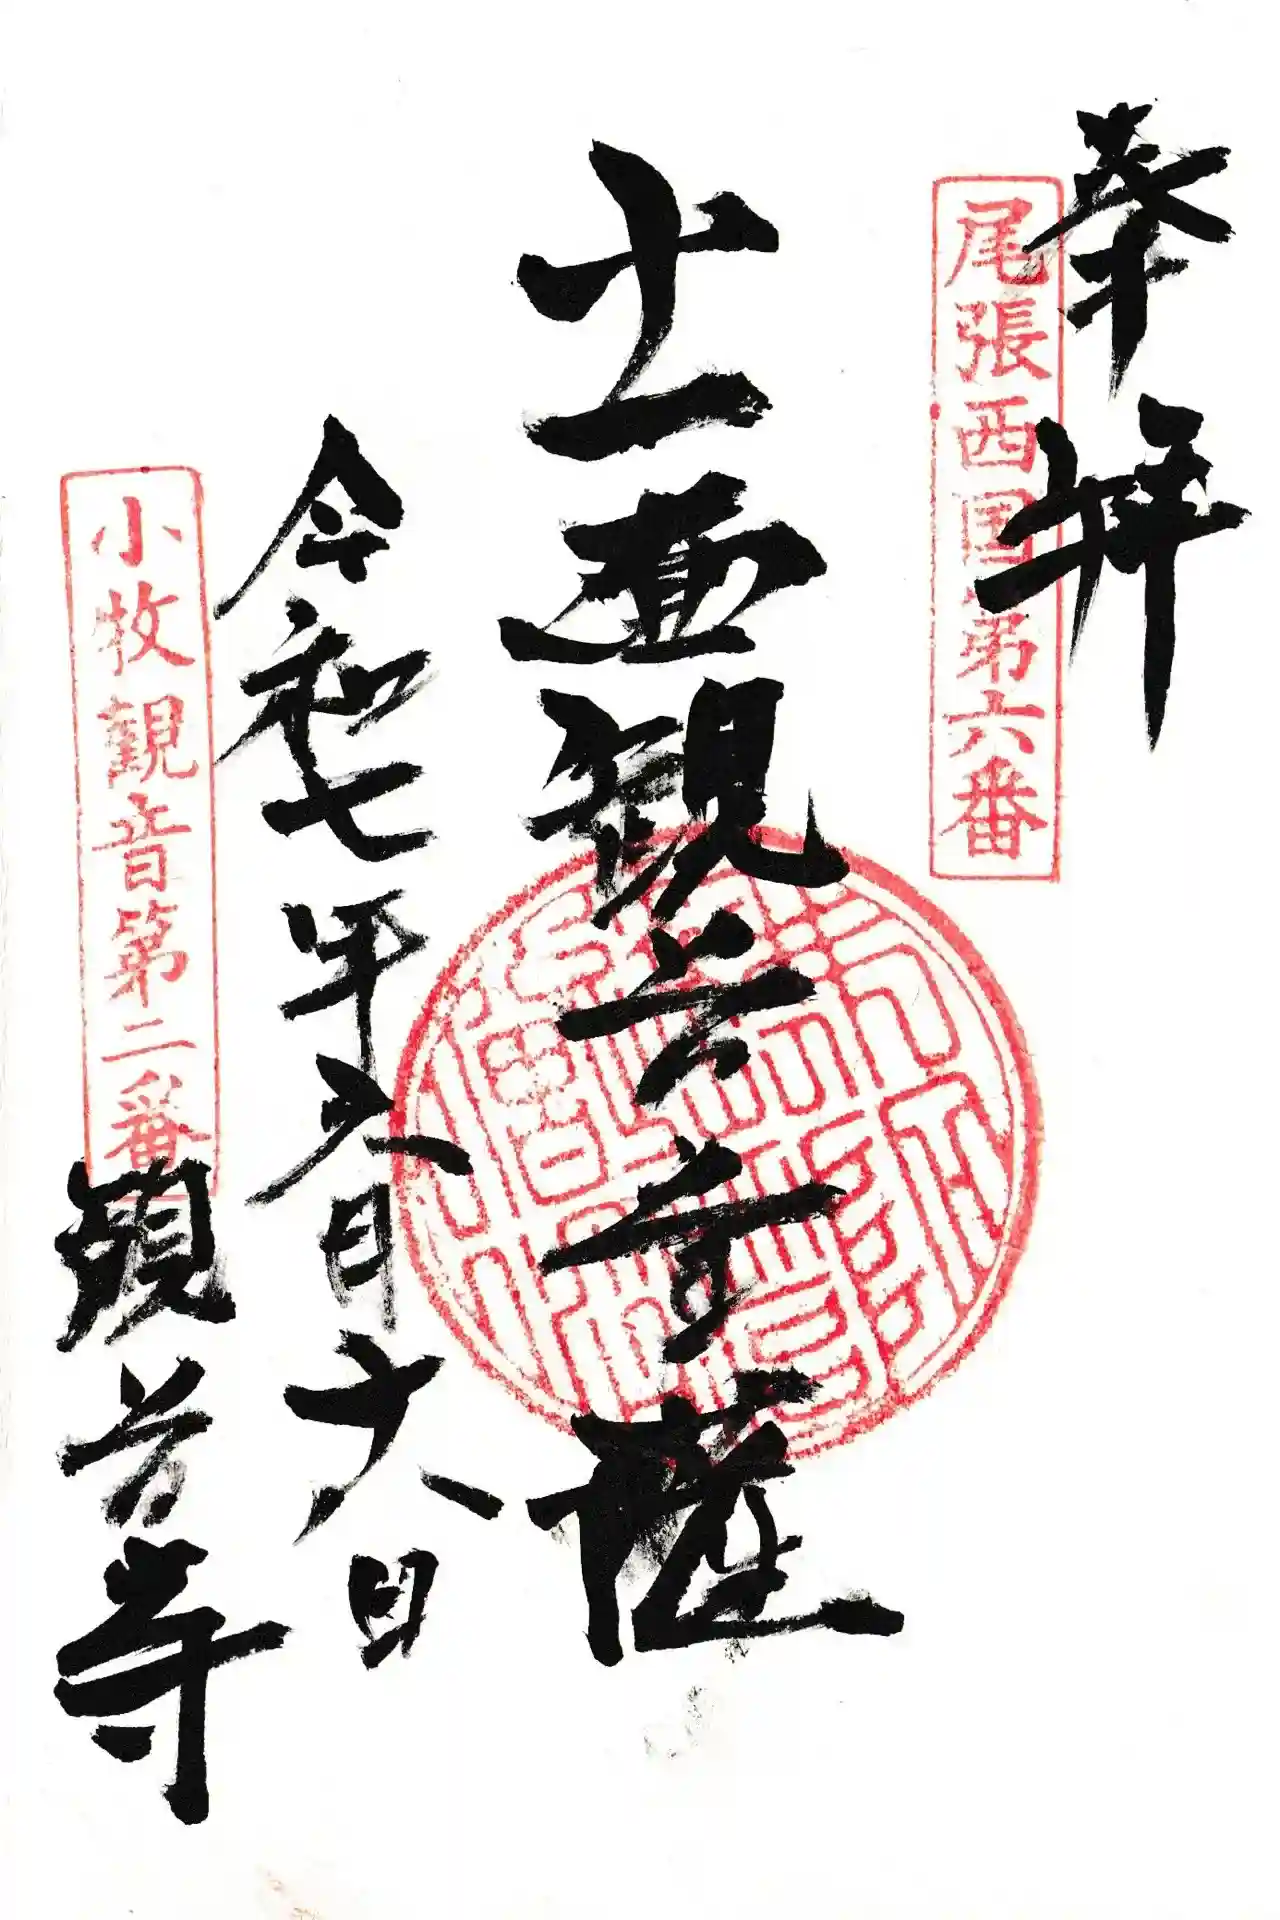 奉拝
尾張西国第六番
十一面観音菩薩
令和七年六月十八日
小牧観音第二番
観音寺